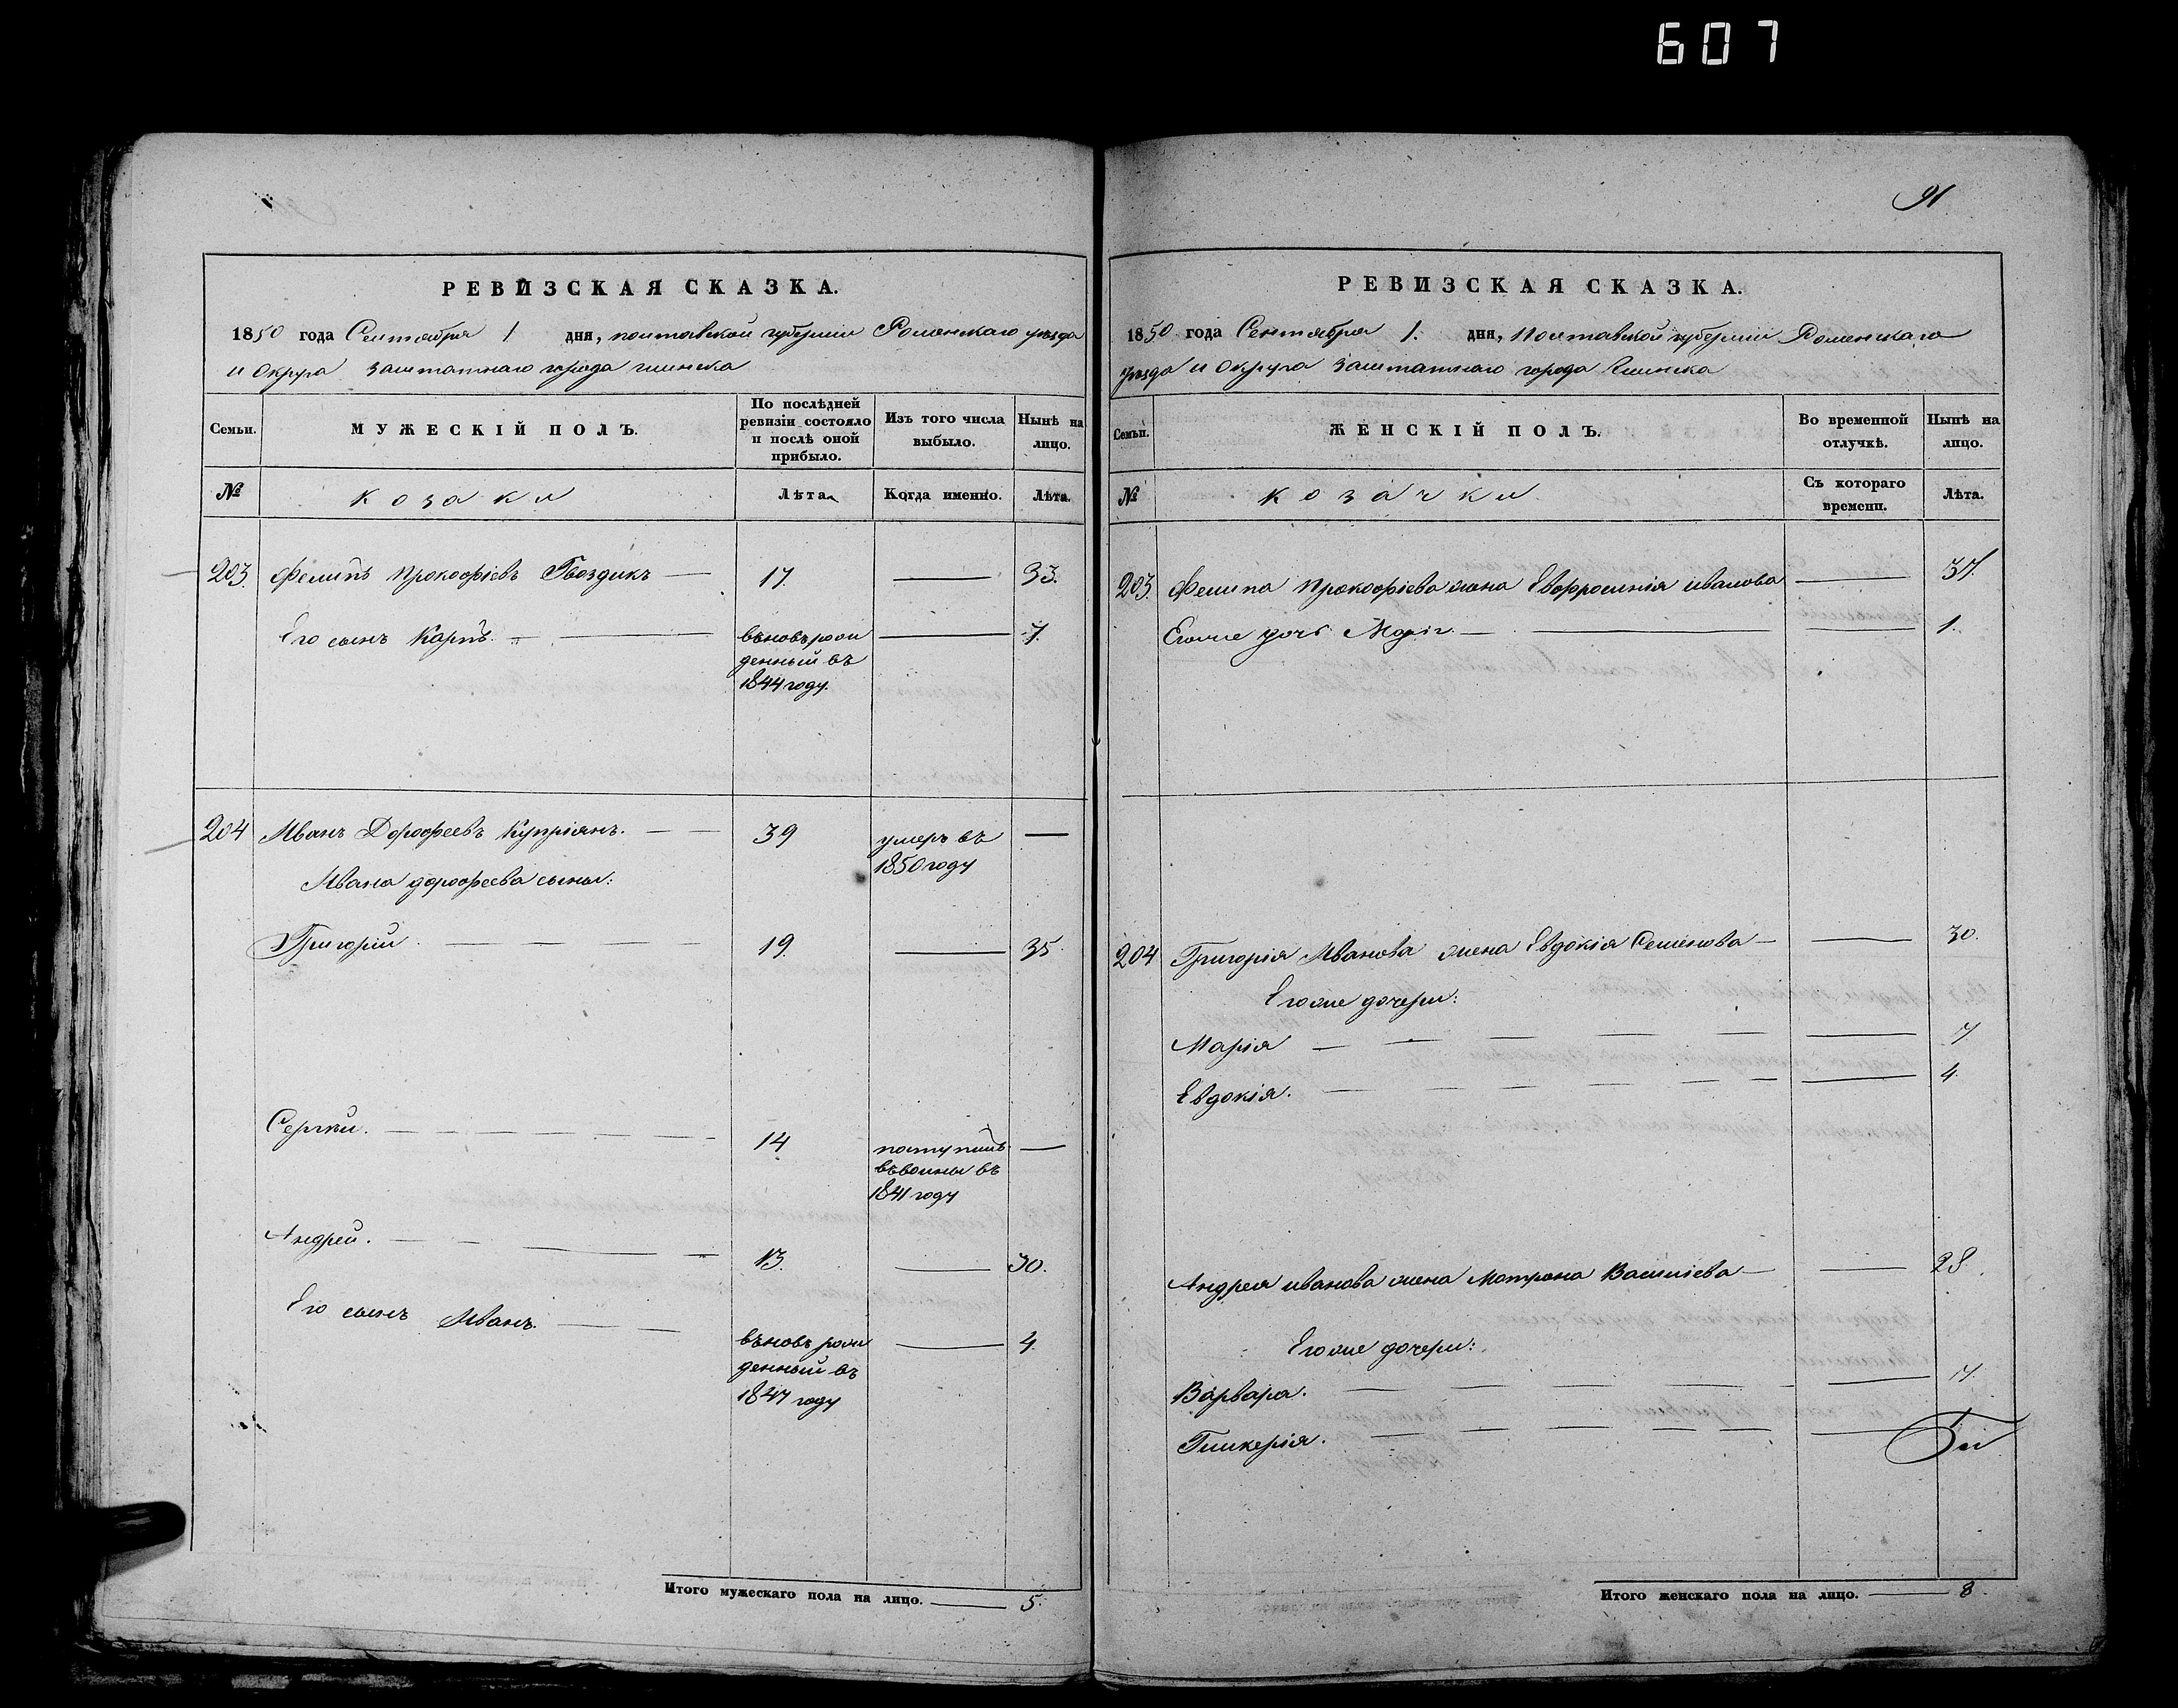 607
РЕВИЗСКАЯ СКАЗКА.
1850 года Сентября 1 дня, полтавской губернии Роменскаго уезда
и округа заштатнаго города глинска
Семьи.
МУЖЕСКІЙ ПОЛЪ.
По послѣдней ревизіи состояло и послѣ оной прибыло.
Изъ того числа выбыло.
Нынѣ на лицо.
№
козаки
Лѣта.
Когда именно.
Лѣта.
203. Филипъ Прокофіевъ Гвоздикъ — 17. — 33.
Его сынъ Карпъ. — вѣновърож — 7.
денный въ
1844 году.
204 Иванъ Дорофеевъ Купріянъ. — 39 умеръ въ —
1850 году
Ивана дорофеева сыны:
Григорій. — 19. — 35.
Сергѣй. — 14 поступилъ —
въвоины въ
1841 году
Андрей. — 13. — 30.
Его сынъ Иванъ. — вѣновь рож — 4.
денный въ
1847 году
Итого мужескаго пола на лицо. — 5.
91
РЕВИЗСКАЯ СКАЗКА.
1850 года Сентября 1. дня, Полтавской губерніи Роменскаго
уезда и Округа Заштатнаго города Глинска
Семьи.
ЖЕНСКІЙ ПОЛЪ.
Во временной отлучкѣ.
Нынѣ на лицо.
№
козачки
Съ котораго времени.
Лѣта.
203. Филипа Прокофіева жена Евфросинія иванова — 37.
Егоже дочь Марія. — 1.
204 Григорія Иванова жена Евдокія Семенова — 30.
Егоже дочери:
Марія — 7
Евдокія. — 4.
Андрея иванова жена Матрона Василіева — 28.
Егоже дочери:
Варвара. — 7.
Гликерія. —
Итого женскаго пола на лицо. — 8.